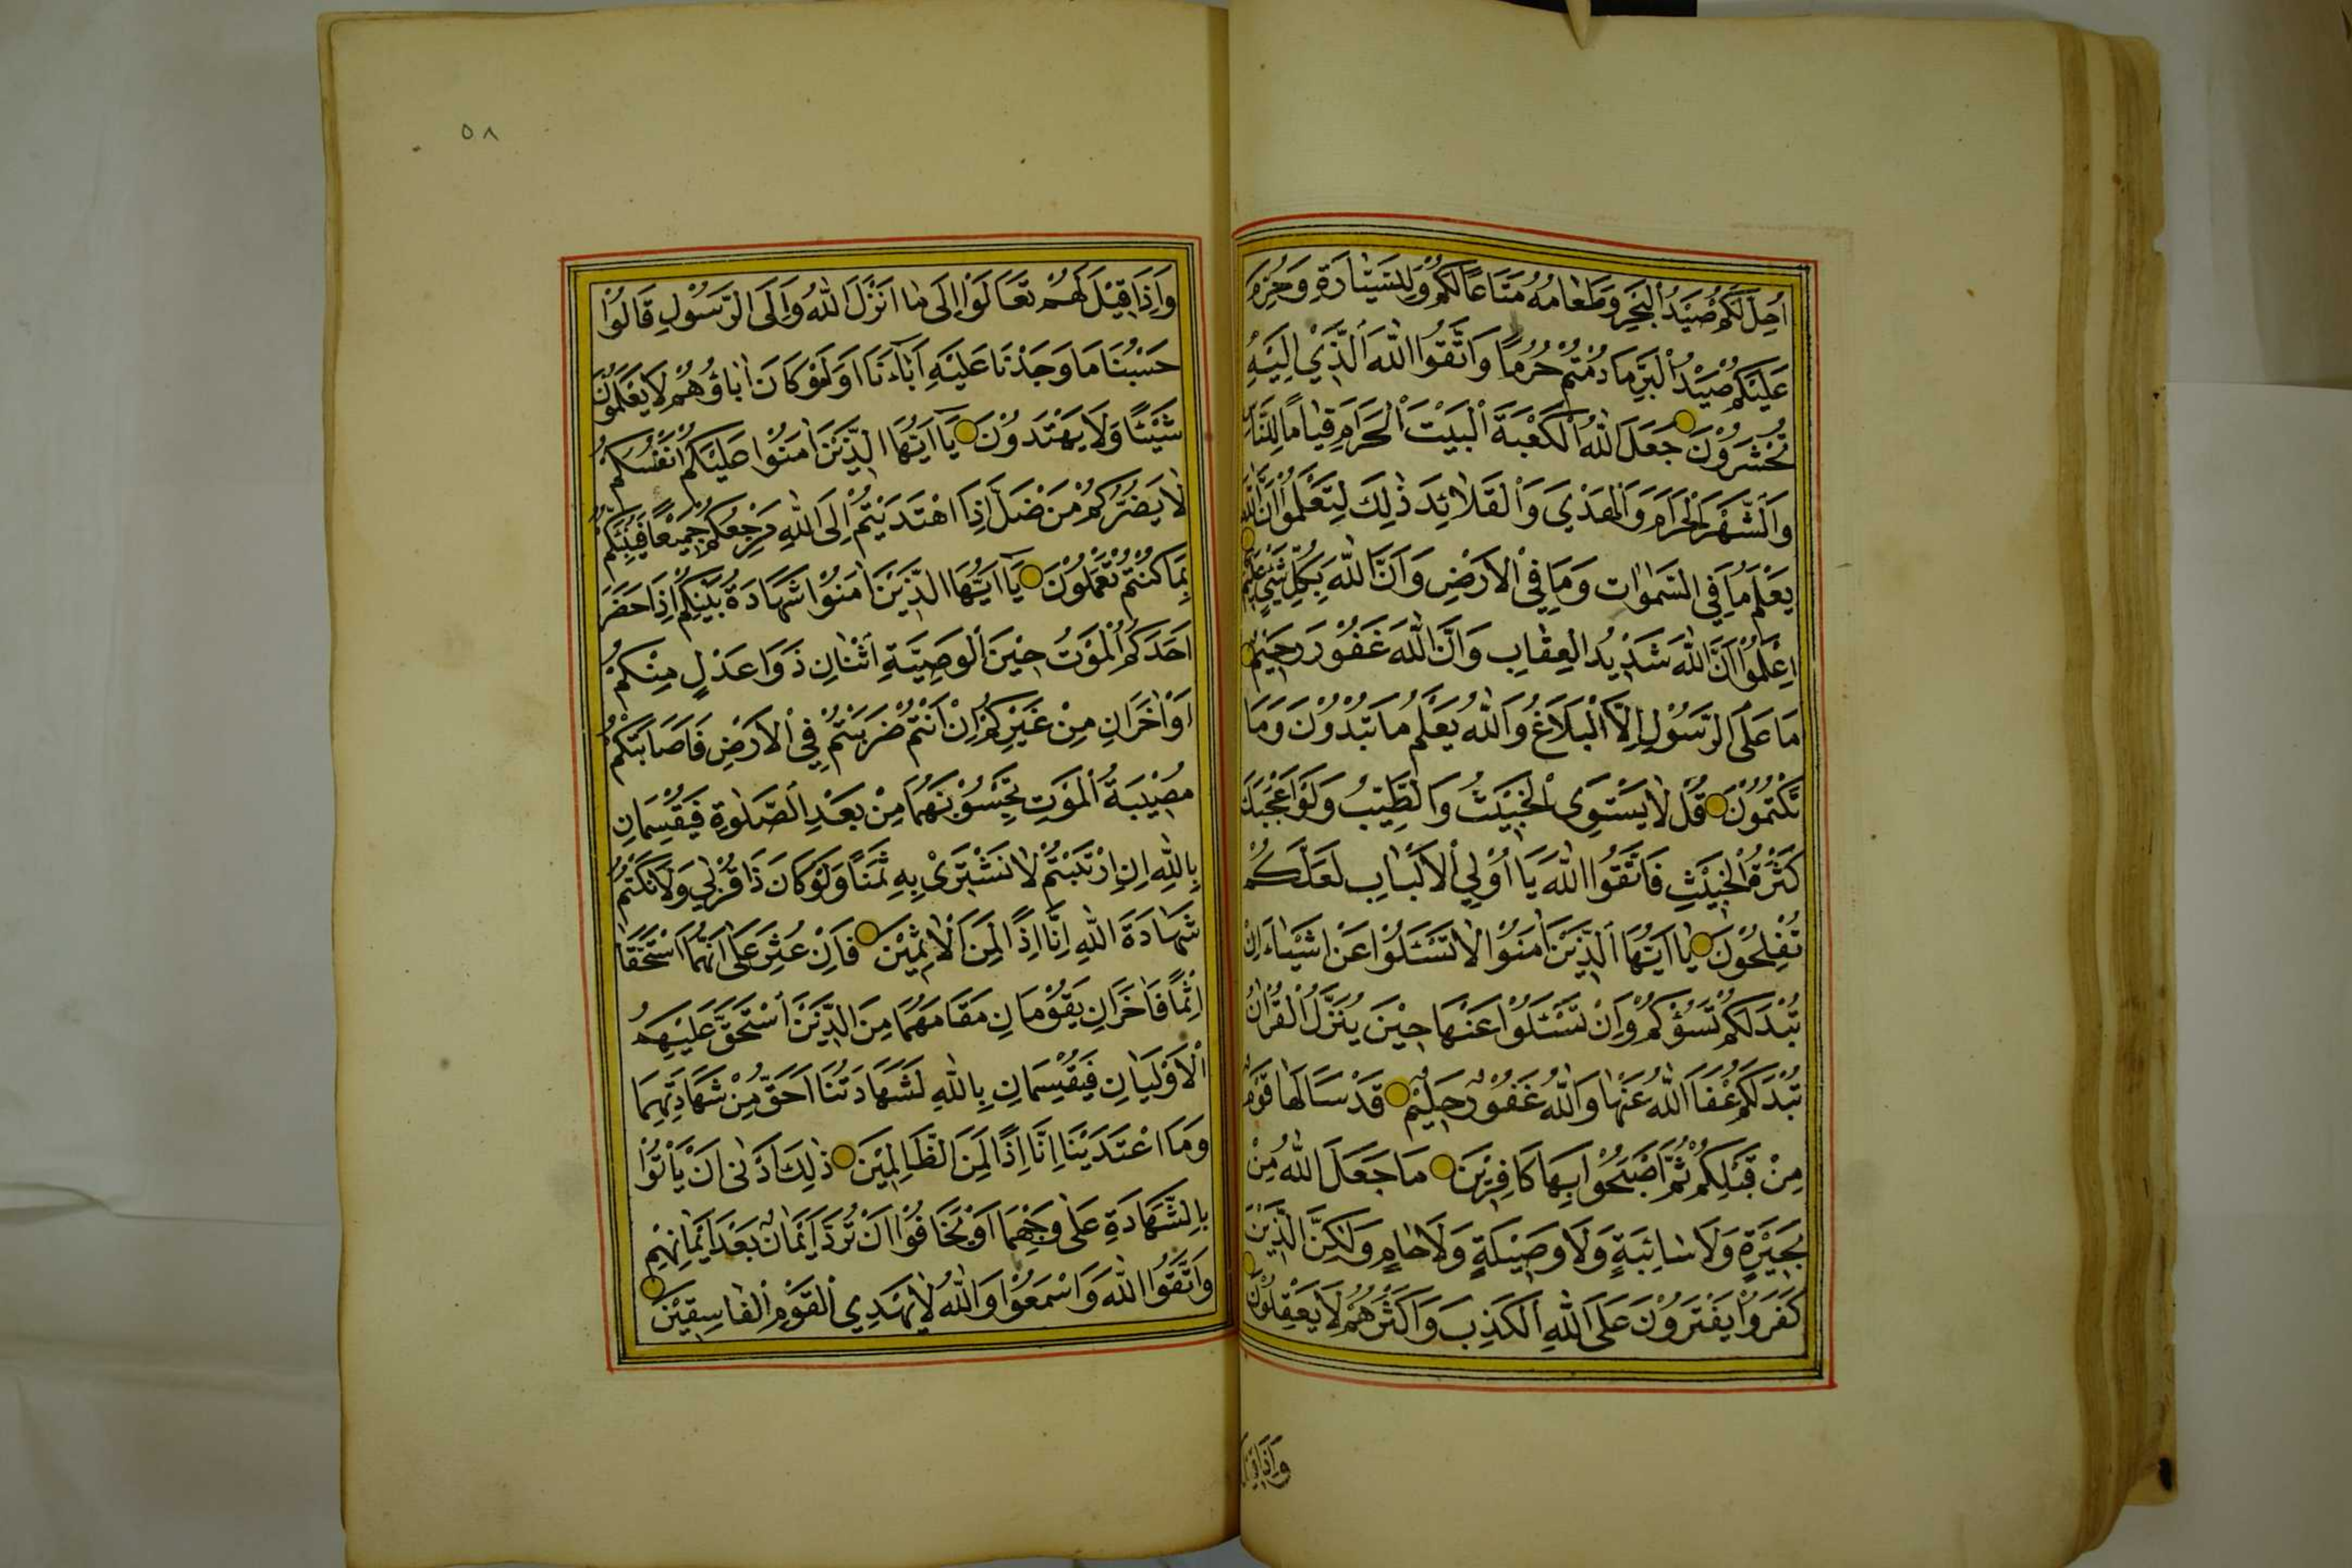 اُحِلَّ لَكُمْ صَيْدُ الْبَحْرِ وَطَعَامُهُ مَتَاعًا لَكُمْ وَلِلسَّيَّارَةِ وَحُرِّمَ
عَلَيْكُمْ صَيْدُ الْبَرِّ مَا دُمْتُمْ حُرُمًا وَاتَّقُوا اللّٰهَ الَّذِي اِلَيْهِ
تُحْشَرُوْنَ جَعَلَ اللّٰهُ الْكَعْبَةَ الْبَيْتَ الْحَرَامَ قِيَامًا لِلنَّاسِ
وَالشَّهْرَ الْحَرَامَ وَالْهَدْيَ وَالْقَلَائِدَ ذٰلِكَ لِتَعْلَمُوْا اَنَّ اللّٰهَ
يَعْلَمُ مَا فِي السَّمٰوَاتِ وَمَا فِي الْاَرْضِ وَاَنَّ اللّٰهَ بِكُلِّ شَيْءٍ عَلِيْمٌ
اِعْلَمُوْا اَنَّ اللّٰهَ شَدِيْدُ الْعِقَابِ وَاَنَّ اللّٰهَ غَفُوْرٌ رَحِيْمٌ
مَا عَلَى الرَّسُوْلِ اِلَّا الْبَلَاغُ وَاللّٰهُ يَعْلَمُ مَا تُبْدُوْنَ وَمَا
تَكْتُمُوْنَ قُلْ لَا يَسْتَوِى الْخَبِيْثُ وَالطَّيِّبُ وَلَوْ اَعْجَبَكَ
كَثْرَةُ الْخَبِيْثِ فَاتَّقُوا اللّٰهَ يَا اُوْلِي الْاَلْبَابِ لَعَلَّكُمْ
تُفْلِحُوْنَ يَا اَيُّهَا الَّذِيْنَ اٰمَنُوْا لَا تَسْئَلُوْا عَنْ اَشْيَاءَ اِنْ
تُبْدَ لَكُمْ تَسُؤْكُمْ وَاِنْ تَسْئَلُوْا عَنْهَا حِيْنَ يُنَزَّلُ الْقُرْاٰنُ
تُبْدَ لَكُمْ عَفَا اللّٰهُ عَنْهَا وَاللّٰهُ غَفُوْرٌ حَلِيْمٌ قَدْ سَاَلَهَا قَوْمٌ
مِنْ قَبْلِكُمْ ثُمَّ اَصْبَحُوْا بِهَا كَافِرِيْنَ مَا جَعَلَ اللّٰهُ مِنْ
بَحِيْرَةٍ وَلَا سَائِبَةٍ وَلَا وَصِيْلَةٍ وَلَا حَامٍ وَلٰكِنَّ الَّذِيْنَ
كَفَرُوْا يَفْتَرُوْنَ عَلَى اللّٰهِ الْكَذِبَ وَاَكْثَرُهُمْ لَا يَعْقِلُوْنَ
وَاِذَا قِيْلَ
٥٨
وَاِذَا قِيْلَ لَهُمْ تَعَالَوْا اِلَى مَا اَنْزَلَ اللّٰهُ وَاِلَى الرَّسُوْلِ قَالُوْا
حَسْبُنَا مَا وَجَدْنَا عَلَيْهِ اٰبَاءَنَا اَوَلَوْ كَانَ اٰبَاؤُهُمْ لَا يَعْلَمُوْنَ
شَيْئًا وَلَا يَهْتَدُوْنَ يَا اَيُّهَا الَّذِيْنَ اٰمَنُوْا عَلَيْكُمْ اَنْفُسَكُمْ
لَا يَضُرُّكُمْ مَنْ ضَلَّ اِذَا اهْتَدَيْتُمْ اِلَى اللّٰهِ مَرْجِعُكُمْ جَمِيْعًا فَيُنَبِّئُكُمْ
بِمَا كُنْتُمْ تَعْمَلُوْنَ يَا اَيُّهَا الَّذِيْنَ اٰمَنُوْا شَهَادَةُ بَيْنِكُمْ اِذَا حَضَرَ
اَحَدَكُمُ الْمَوْتُ حِيْنَ الْوَصِيَّةِ اثْنَانِ ذَوَا عَدْلٍ مِنْكُمْ
اَوْ اٰخَرَانِ مِنْ غَيْرِكُمْ اِنْ اَنْتُمْ ضَرَبْتُمْ فِي الْاَرْضِ فَاَصَابَتْكُمْ
مُصِيْبَةُ الْمَوْتِ تَحْبِسُوْنَهُمَا مِنْ بَعْدِ الصَّلٰوةِ فَيُقْسِمَانِ
بِاللّٰهِ اِنِ ارْتَبْتُمْ لَا نَشْتَرِىْ بِهِ ثَمَنًا وَلَوْ كَانَ ذَا قُرْبٰى وَلَا نَكْتُمُ
شَهَادَةَ اللّٰهِ اِنَّا اِذًا لَمِنَ الْاٰثِمِيْنَ فَاِنْ عُثِرَ عَلٰى اَنَّهُمَا اسْتَحَقَّا
اِثْمًا فَاٰخَرَانِ يَقُوْمَانِ مَقَامَهُمَا مِنَ الَّذِيْنَ اسْتَحَقَّ عَلَيْهِمُ
الْاَوْلَيَانِ فَيُقْسِمَانِ بِاللّٰهِ لَشَهَادَتُنَا اَحَقُّ مِنْ شَهَادَتِهِمَا
وَمَا اعْتَدَيْنَا اِنَّا اِذًا لَمِنَ الظَّالِمِيْنَ ذٰلِكَ اَدْنٰى اَنْ يَأْتُوْا
بِالشَّهَادَةِ عَلٰى وَجْهِهَا اَوْ يَخَافُوْا اَنْ تُرَدَّ اَيْمَانٌ بَعْدَ اَيْمَانِهِمْ
وَاتَّقُوا اللّٰهَ وَاسْمَعُوْا وَاللّٰهُ لَا يَهْدِي الْقَوْمَ الْفَاسِقِيْنَ